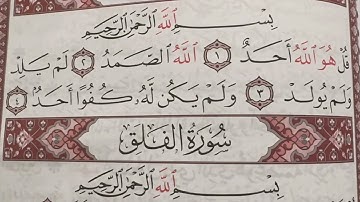 بِسْمِ ٱللَّهِ ٱلرَّحْمَٰنِ ٱلرَّحِيمِ
قُلْ هُوَ ٱللَّهُ أَحَدٌ ١ ٱللَّهُ ٱلصَّمَدُ ٢ لَمْ يَلِدْ
وَلَمْ يُولَدْ ٣ وَلَمْ يَكُن لَّهُۥ كُفُوًا أَحَدٌۢ ٤
سُورَةُ الفَلَقِ
بِسْمِ ٱللَّهِ ٱلرَّحْمَٰنِ ٱلرَّحِيمِ